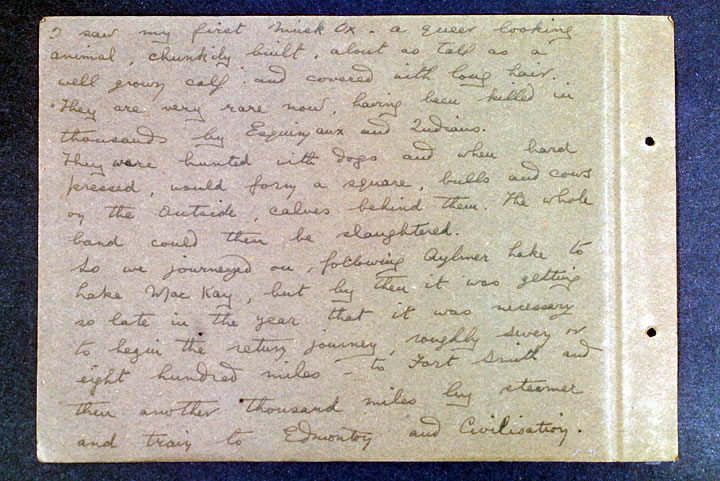 I saw my first Musk Ox - a queer looking
animal, chunkily built, about as tall as a
well grown calf and covered with long hair.
They are very rare now, having been killed in
thousands by Esquimaux and Indians.
They were hunted with dogs and when hard
pressed, would form a square, bulls and cows
on the outside, calves behind them. The whole
band could then be slaughtered.
So we journeyed on, following Aylmer Lake to
Lake MacKay, but by then it was getting
so late in the year that it was necessary
to begin the return journey, roughly seven or
eight hundred miles - to Fort Smith and
then another thousand miles by steamer
and train to Edmonton and Civilisation.